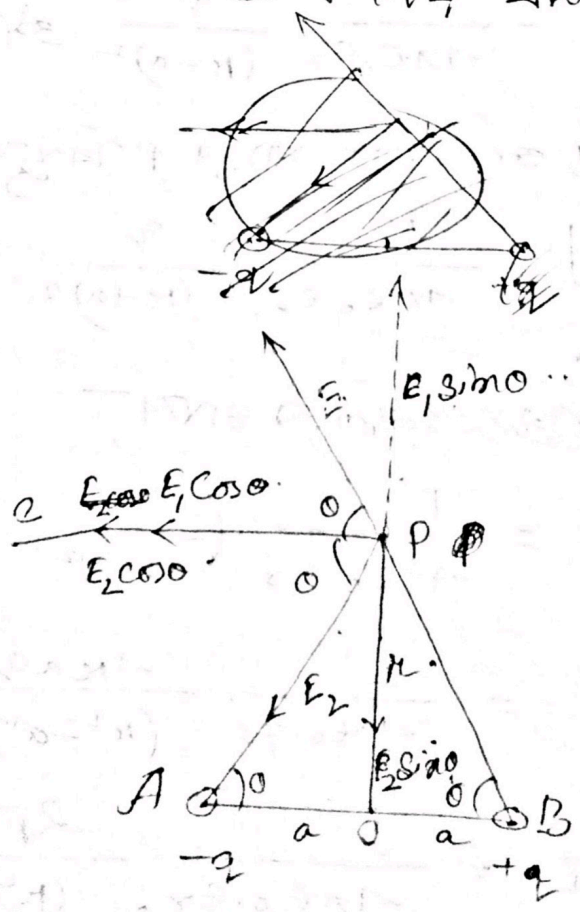 -q
+q
E₁ Sinθ
E₁
E₁ Cosθ
θ
P
E₂ Cosθ
θ
r
E₂
E₂ Sinθ
A
θ
θ
B
a
O
a
-q
+q